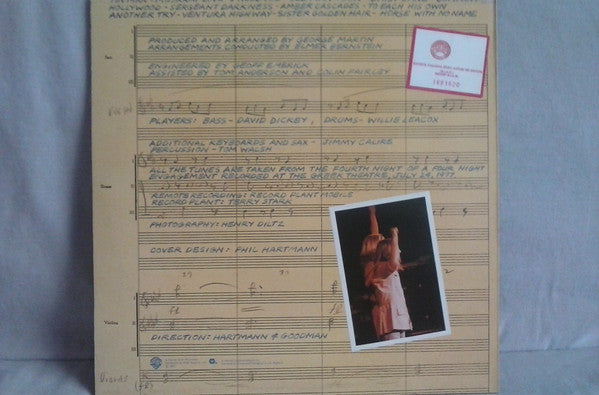 HOLLYWOOD - SERGEANT DARKNESS - AMBER CASCADES - TO EACH HIS OWN
ANOTHER TRY - VENTURA HIGHWAY - SISTER GOLDEN HAIR - HORSE WITH NO NAME
PRODUCED AND ARRANGED BY GEORGE MARTIN
ARRANGEMENTS CONDUCTED BY ELMER BERNSTEIN
ENGINEERED BY GEOFF EMERICK
ASSISTED BY TOM ANDERSON AND COLIN FAIRLEY
PLAYERS: BASS - DAVID DICKEY, DRUMS - WILLIE LEACOX
ADDITIONAL KEYBOARDS AND SAX - JIMMY CALIRE
PERCUSSION - TOM WALSH
ALL THE TUNES ARE TAKEN FROM THE FOURTH NIGHT OF A FOUR NIGHT
ENGAGEMENT RECORDED AT THE GREEK THEATRE, JULY 29, 1977.
REMOTE RECORDING: RECORD PLANT MOBILE
RECORD PLANT: TERRY STARK
PHOTOGRAPHY: HENRY DILTZ
COVER DESIGN: PHIL HARTMANN
Violins
DIRECTION: HARTMANN & GOODMAN